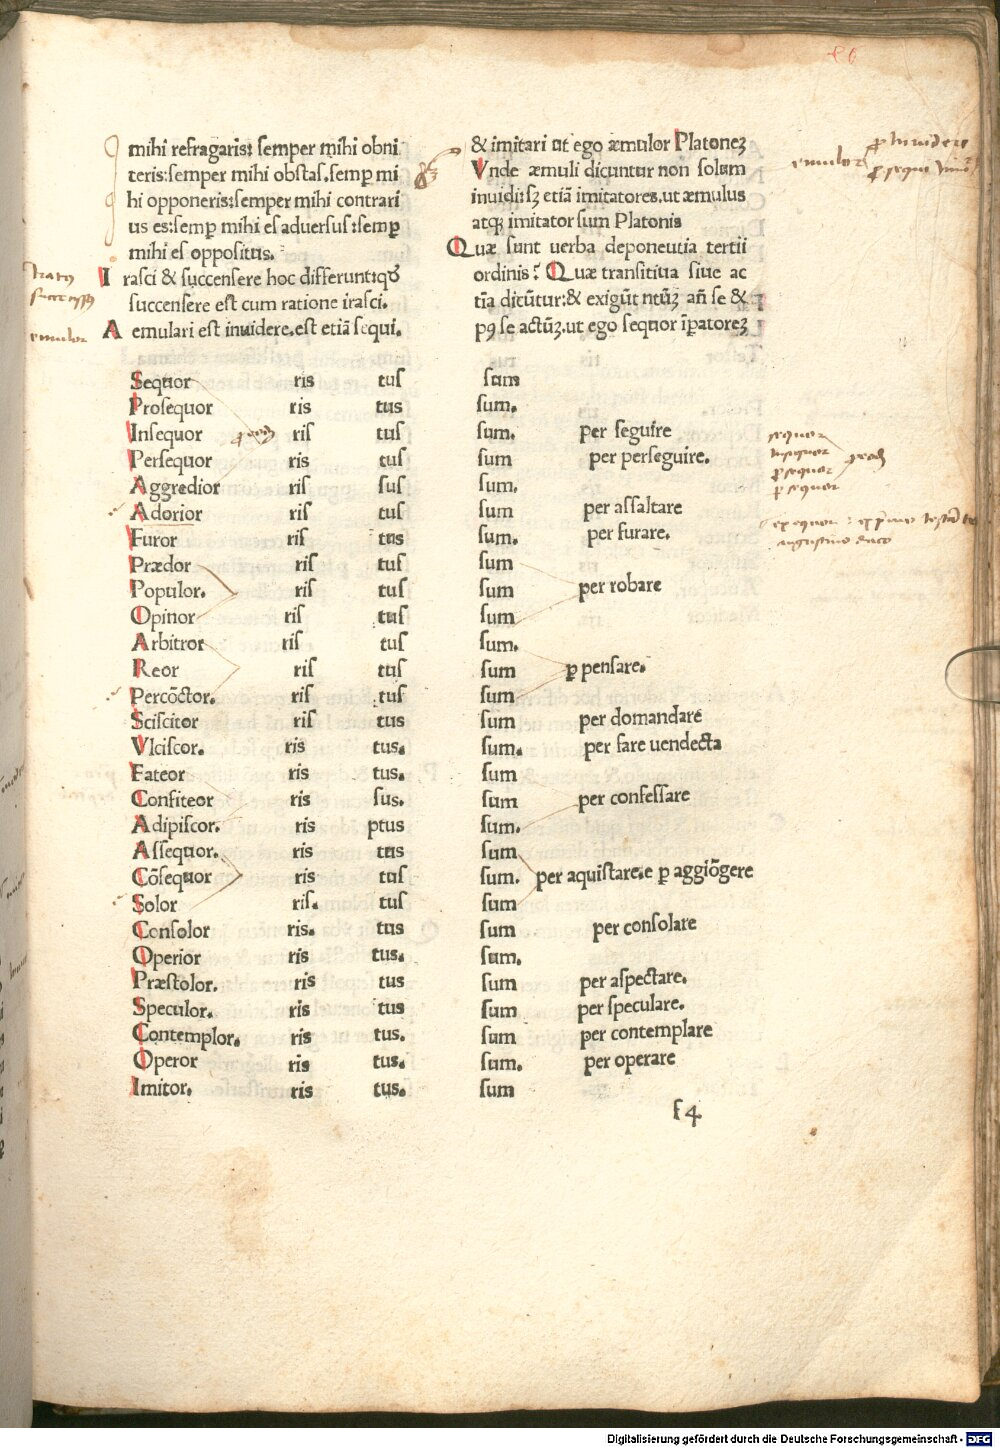 mihi refragaris: semper mihi obni
teris: semper mihi obstas. semꝑ mi
hi opponeris: semper mihi contrari
us es: semꝑ mihi es aduersus: semꝑ
mihi es oppositus.
Irasci & succensere hoc differunt: ꝙ
succensere est cum ratione irasci.
Aemulari est inuidere. est etiā sequi.
& imitari ut ego æmulor Platoneꝫ
Vnde æmuli dicuntur non solum
inuidi: sꝫ etiā imitatores. ut æmulus
atqꝫ imitator sum Platonis
Quæ sunt uerba deponentia tertii
ordinis? Quæ transitiua siue ac
tīa dicūtur: & exigūt ntūꝫ añ se &
pꝯ se actūꝫ. ut ego sequor īꝑatoreꝫ
Sequor ris tus sum
Prosequor ris tus sum.
Insequor ris tus sum. per seguire
Persequor ris tus sum per perseguire.
Aggredior ris sus sum.
Adorior ris tus sum per assaltare
Furor ris tus sum. per furare.
Prædor ris tus sum
Populor. ris tus sum per robare
Opinor ris tus sum
Arbitror ris tus sum.
Reor ris tus sum ꝑ pensare.
Percōctor. ris tus sum
Sciscitor ris tus sum per domandare
Vlciscor. ris tus. sum. per fare uendecta
Fateor ris tus. sum
Confiteor ris sus. sum per confessare
Adipiscor. ris ptus sum.
Assequor. ris tus sum
Cōsequor ris tus sum. per aquistare. e ꝑ aggiōgere
Solor ris. tus sum
Consolor ris. tus sum per consolare
Operior ris tus. sum.
Præstolor. ris tus sum per aspectare.
Speculor. ris tus sum per speculare.
Contemplor. ris tus. sum per contemplare
Operor ris tus. sum. per operare
Imitor. ris tus. sum
f4
emulor
emulor
sequor
insequor
Digitalisierung gefördert durch die Deutsche Forschungsgemeinschaft - DFG